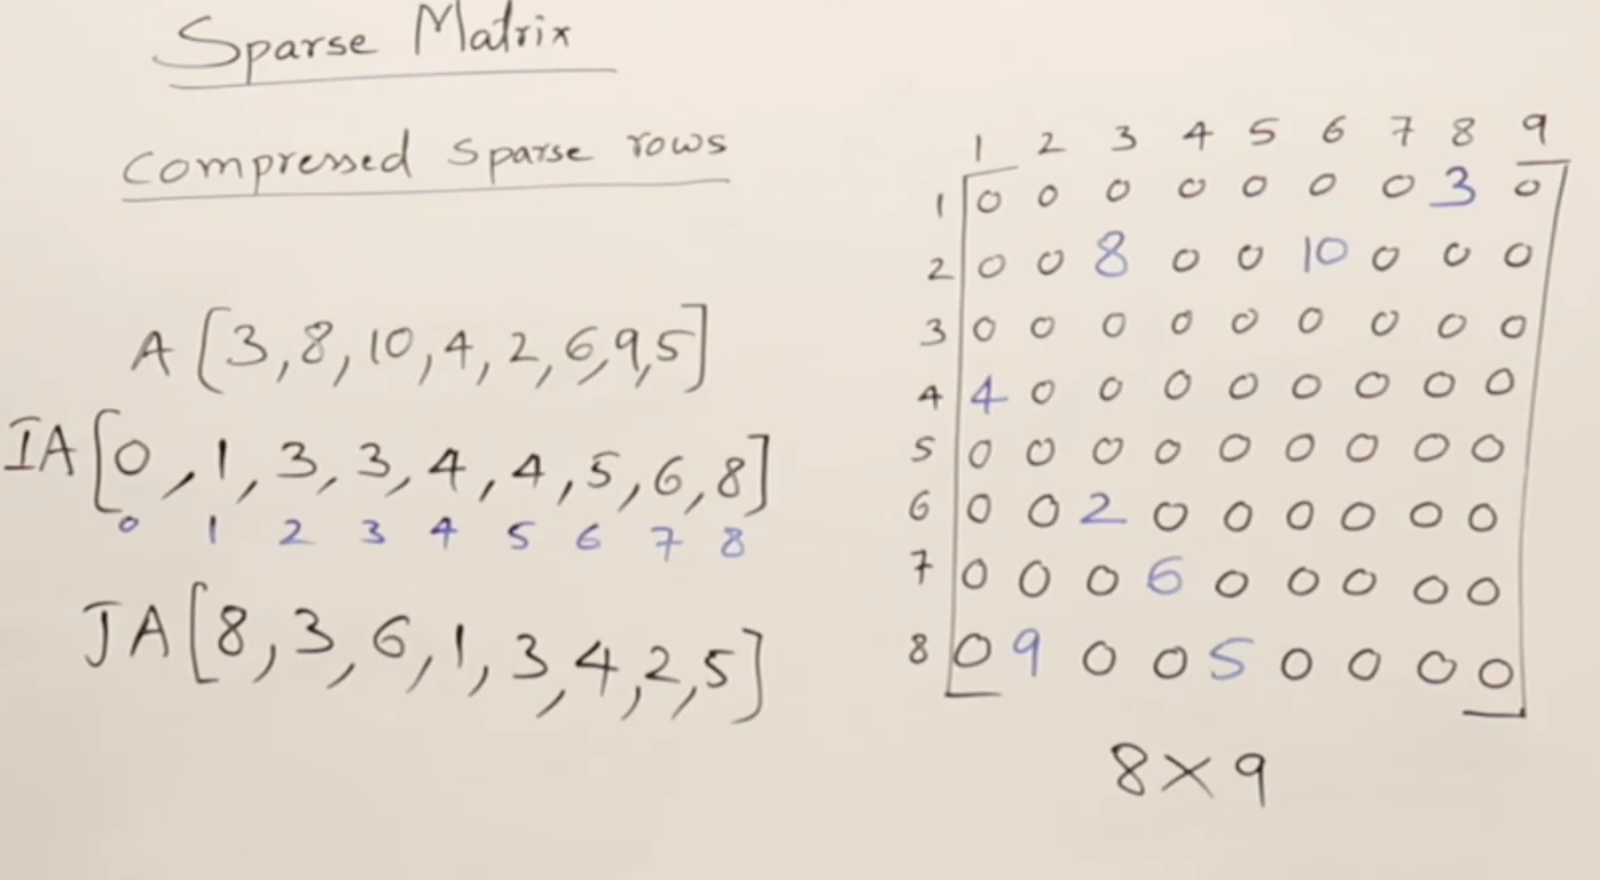 Sparse Matrix
Compressed Sparse rows
A[3,8,10,4,2,6,9,5]
IA[0,1,3,3,4,4,5,6,8]
0 1 2 3 4 5 6 7 8
JA[8,3,6,1,3,4,2,5]
1 2 3 4 5 6 7 8 9
1 0 0 0 0 0 0 0 3 0
2 0 0 8 0 0 10 0 0 0
3 0 0 0 0 0 0 0 0 0
4 4 0 0 0 0 0 0 0 0
5 0 0 0 0 0 0 0 0 0
6 0 0 2 0 0 0 0 0 0
7 0 0 0 6 0 0 0 0 0
8 0 9 0 0 5 0 0 0 0
8×9